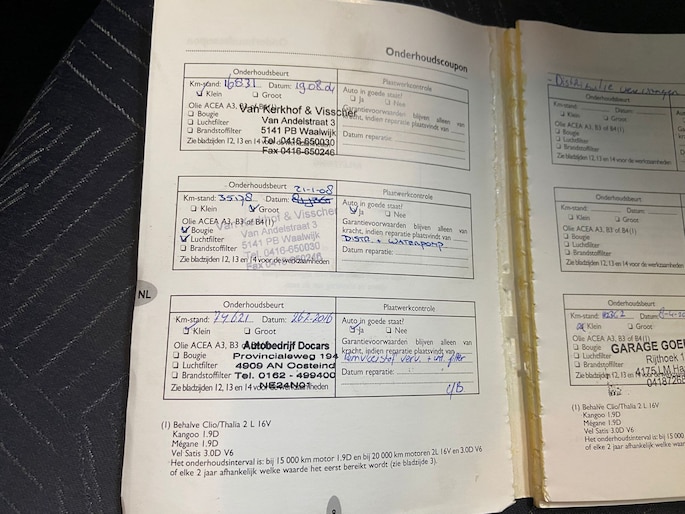 Onderhoudscoupon
Onderhoudsbeurt
Plaatwerkcontrole
Km-stand: 16831 Datum: 190804
Klein Groot
Auto in goede staat?
Ja Nee
Olie ACEA A3, B3 of B4(1)
Bougie
Luchtfilter
Brandstoffilter
Zie bladzijden 12, 13 en 14 voor de werkzaamheden
Van Kerkhof & Visscher
Van Andelstraat 3
5141 PB Waalwijk
Tel. 0416-650030
Fax 0416-650246
Garantievoorwaarden blijven alleen van
kracht, indien reparatie plaatsvindt van
Datum reparatie:
Onderhoudsbeurt
Plaatwerkcontrole
21-1-08
Km-stand: 35138 Datum:
Klein Groot
Auto in goede staat?
Ja Nee
Olie ACEA A3, B3 of B4(1)
Bougie
Luchtfilter
Brandstoffilter
Zie bladzijden 12, 13 en 14 voor de werkzaamheden
Van Kerkhof & Visscher
Van Andelstraat 3
5141 PB Waalwijk
Tel. 0416-650030
Fax 0416-650246
Garantievoorwaarden blijven alleen van
kracht, indien reparatie plaatsvindt van
DISTR. + WATERPOMP
Datum reparatie:
NL
Onderhoudsbeurt
Plaatwerkcontrole
Km-stand: 79621 Datum: 267-2016
Klein Groot
Auto in goede staat?
Ja Nee
Olie ACEA A3, B3 of B4(1)
Bougie
Luchtfilter
Brandstoffilter
Zie bladzijden 12, 13 en 14 voor de werkzaamheden
Autobedrijf Docars
Provincialeweg 194
4909 AN Oosteind
Tel. 0162 - 499400
NE24N01
Garantievoorwaarden blijven alleen van
kracht, indien reparatie plaatsvindt van
Remvloeistof verv. + int. filter
Datum reparatie:
(1) Behalve Clio/Thalia 2 L 16V
Kangoo 1.9D
Mégane 1.9D
Vel Satis 3.0D V6
Het onderhoudsinterval is: bij 15 000 km motor 1.9D en bij 20 000 km motoren 2L 16V en 3.0D V6
of elke 2 jaar afhankelijk welke waarde het eerst bereikt wordt (zie bladzijde 3).
8
Onderhoudsbeurt
Km-stand: Datum:
Klein Groot
Olie ACEA A3, B3 of B4(1)
Bougie
Luchtfilter
Brandstoffilter
Zie bladzijden 12, 13 en 14 voor de werkzaamheden
Onderhoudsbeurt
Km-stand: Datum:
Klein Groot
Olie ACEA A3, B3 of B4 (1)
Bougie
Luchtfilter
Brandstoffilter
Zie bladzijden 12, 13 en 14 voor de werkzaamheden
Onderhoudsbeurt
Km-stand: Datum:
Klein Groot
Olie ACEA A3, B3 of B4 (1)
Bougie
Luchtfilter
Brandstoffilter
Zie bladzijden 12, 13 en
GARAGE GOE
Rijthoek
4175 LM Ha
0418726
(1) Behalve Clio/Thalia 2 L 16V
Kangoo 1.9D
Mégane 1.9D
Vel Satis 3.0D V6
Het onderhoudsinterval is: bij 15
of elke 2 jaar afhankelijk welke